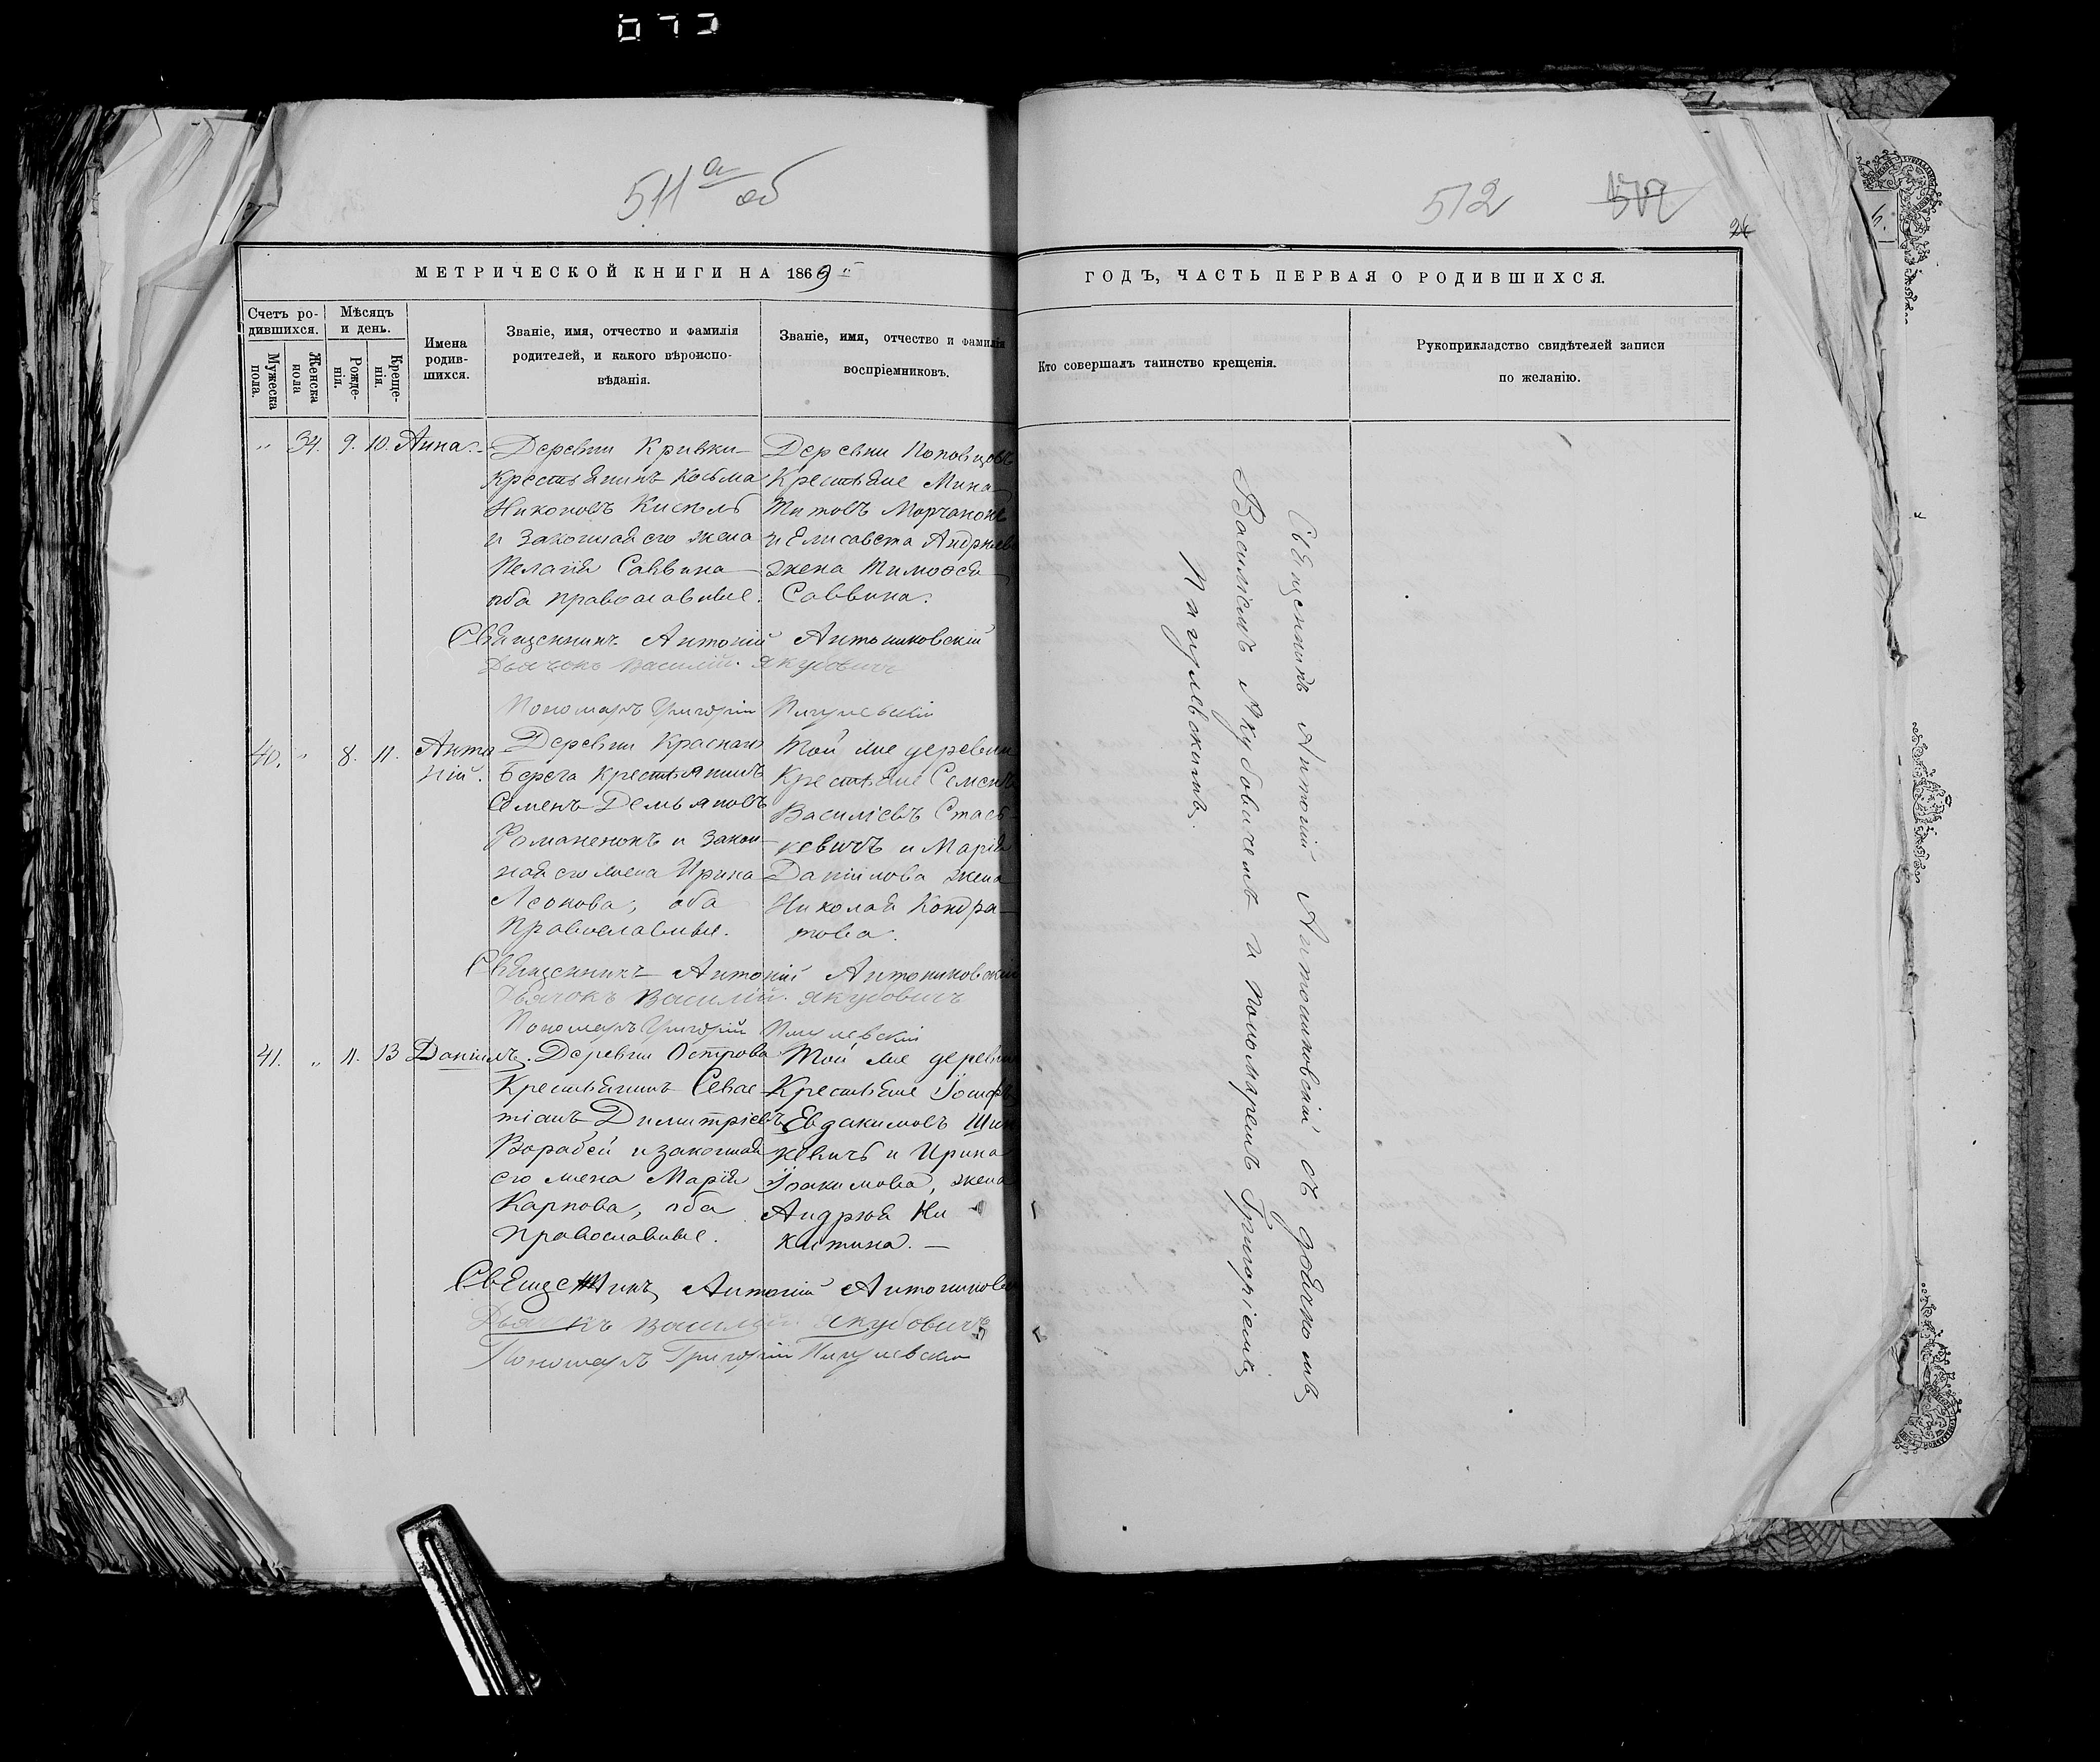 511 а об
512
24
МЕТРИЧЕСКОЙ КНИГИ НА 1869
ГОДЪ, ЧАСТЬ ПЕРВАЯ О РОДИВШИХСЯ.
Счетъ родившихся.
Мужеска пола.
Женска пола
Мѣсяцъ и день.
Рожденія.
Крещенія.
Имена родившихся.
Званіе, имя, отчество и фамилія
родителей, и какого вѣроисповѣданія.
Званіе, имя, отчество и фамилія
воспріемниковъ.
Кто совершалъ таинство крещенія.
Рукоприкладство свидѣтелей записи
по желанію.
" 34. 9. 10. Анна.
Деревни Кривки
крестьянинъ Косьма
Никоновъ Кисель
и законная его жена
Пелагія Саввина
оба православные.
Деревни Поповцовъ
Крестьяне Мина
Титовъ Морчанокъ
и Елисавета Андреева
жена Тимоѳея
Саввина.
Священникъ Антоній Антониковскій
Дьячокъ Василій Якубовичъ
Пономарь Григорій Пигулевскій
40. " 8. 11. Антоній.
Деревни Краснаго
Берега крестьянинъ
Семенъ Демьяновъ
Романенокъ и законная его жена Ирина
Леонова, оба
Православные.
Той же деревни
Крестьяне Семенъ
Василіевъ Стаськевичъ и Марія
Даніилова жена
Николая Кондратова.
Священникъ Антоній Антониковскій
Дьячокъ Василій Якубовичъ
Пономарь Григорій Пигулевскій
41. " 11. 13 Даніилъ.
Деревни Острова
Крестьянинъ Севастіанъ Димитріевъ
Воробей и законная
его жена Марія
Карпова, оба
православные.
Той же деревни
Крестьяне Іосифъ
Евдакимовъ
и Ирина
Іоакимова, жена
Андрея Никитина.
Священникъ Антоній Антониковскій
Дьячокъ Василій Якубовичъ
Пономарь Григорій Пигулевскій
Священникъ Антоній Антониковскій съ дьячкомъ
Василіемъ Якубовичемъ и пономаремъ Григоріемъ
Пигулевскимъ.